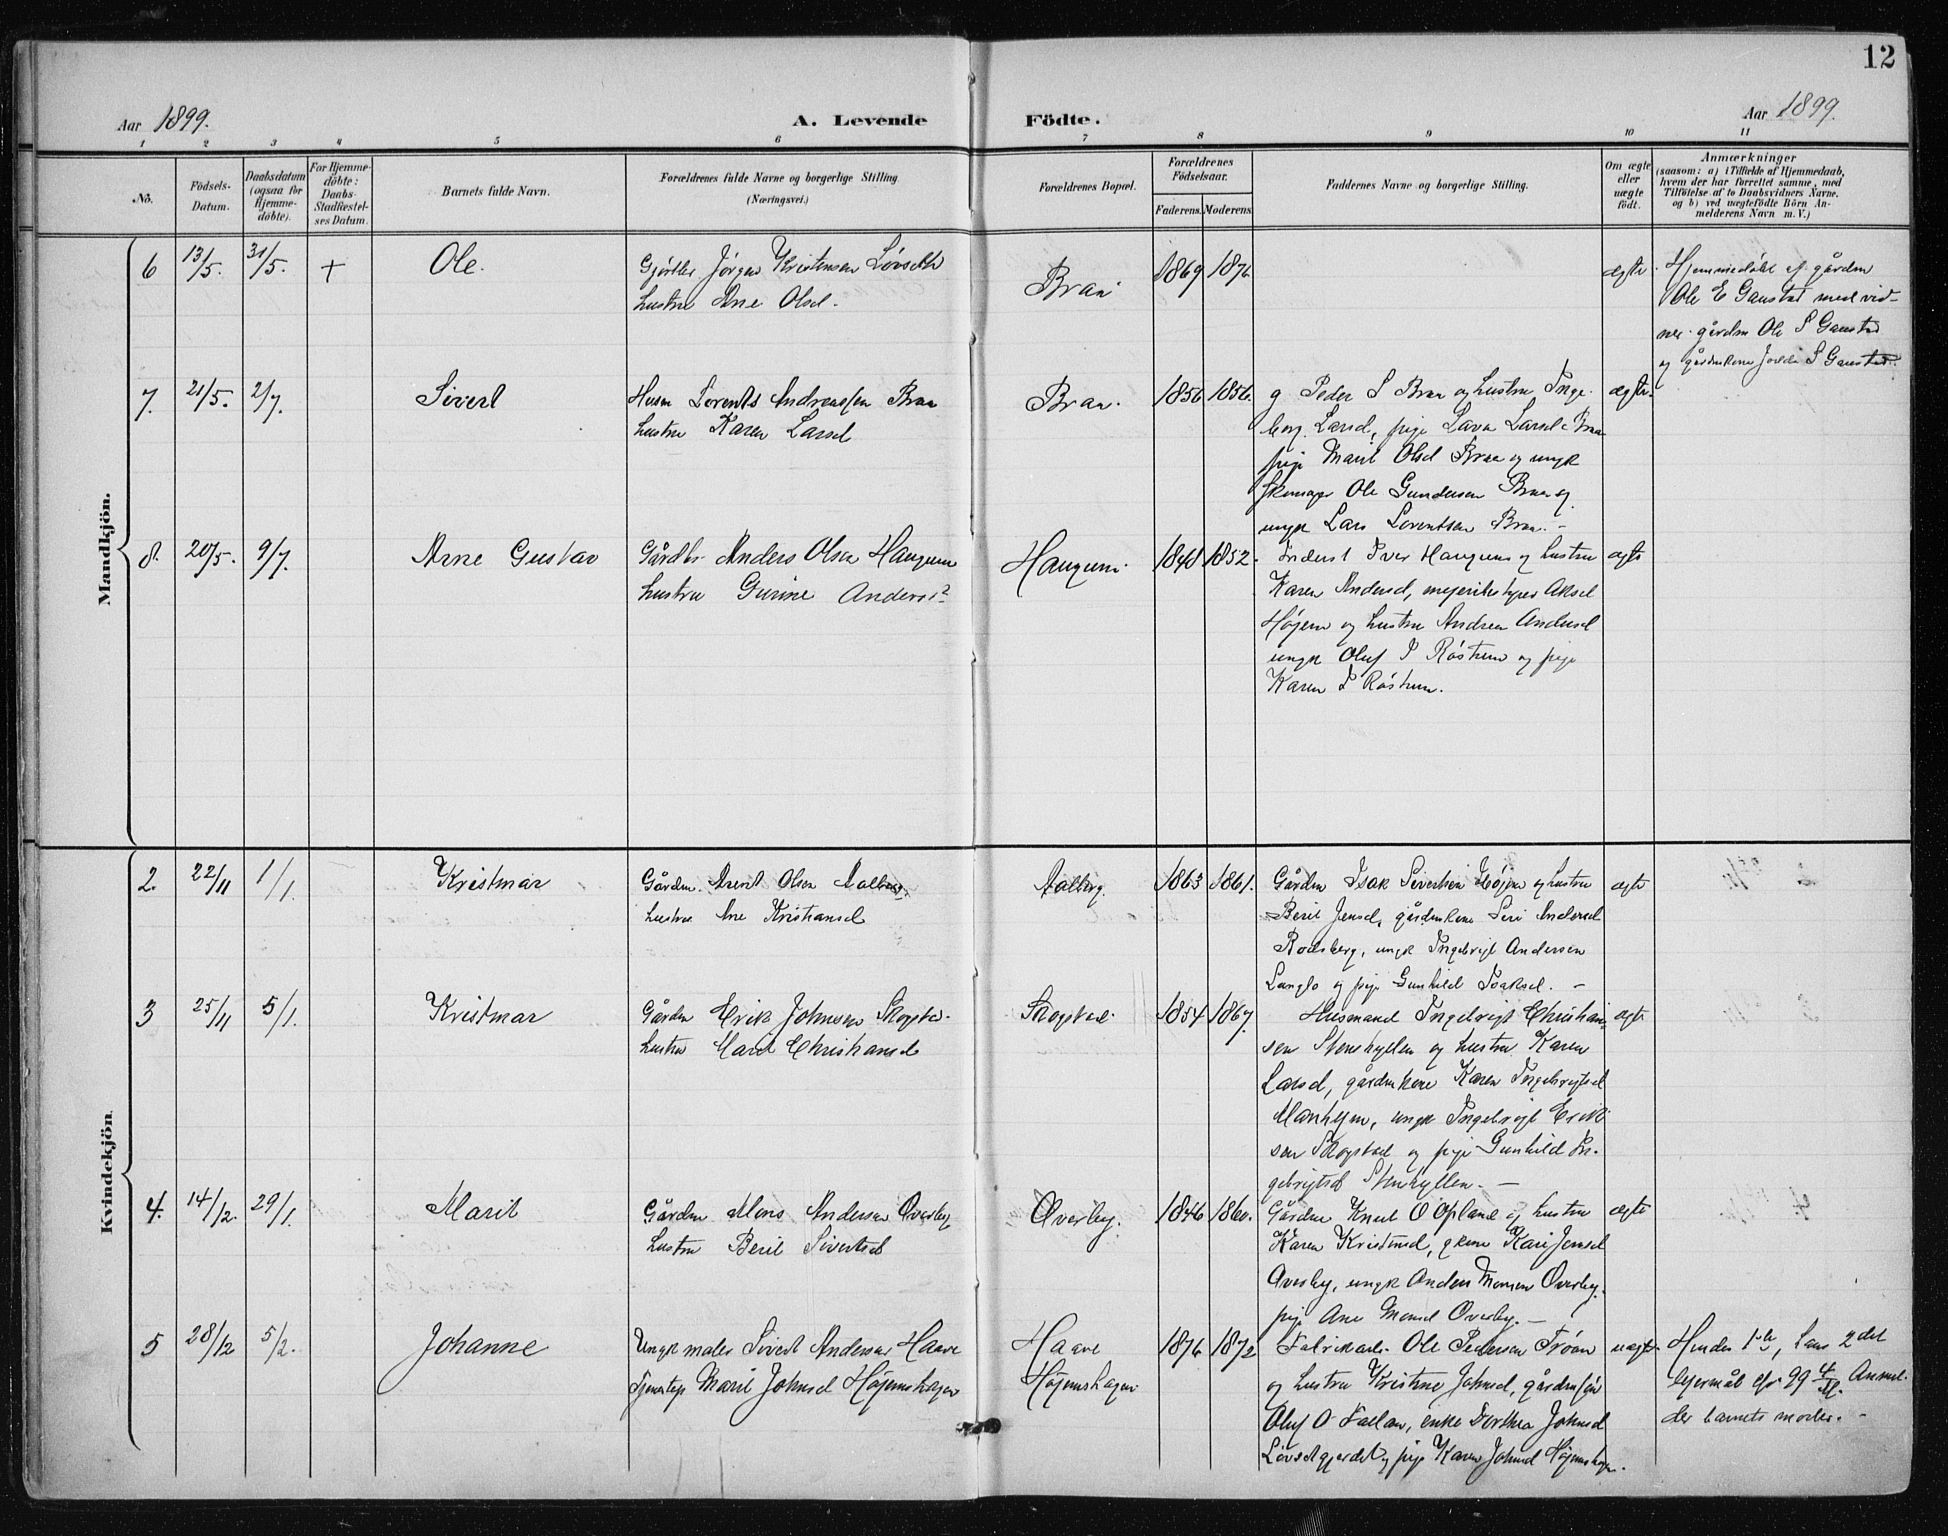 12
Aar 1899.
A. Levende Födte.
Aar 1899.
1 2 3 4 5 6 7 8 9 10 11
No.
Födsels-Datum.
Daabsdatum (ogsaa for Hjemme-döbte).
For Hjemme-döbte: Daabs-Stadfæstel-ses Datum.
Barnets fulde Navn.
Forældrenes fulde Navne og borgerlige Stilling
(Næringsvei.)
Forældrenes Bopæl.
Forældrenes Födselsaar.
Faderens. Moderens.
Faddernes Navne og borgerlige Stilling.
Om ægte eller uægte födt.
Anmærkninger
(saasom: a) i Tilfælde af Hjemmedaab,
hvem der har forrettet samme, med
Tilföielse af to Daabsvidners Navne.
og b) ved uægtefödte Börn An-
melderens Navn m. V.)
Mandkjön.
6 13/5. 31/5. + Ole.
Jørgen Kristensen Løvseth
hustru Ane Olsd.
Braa
1869 1876
ægte.
Hjemmedøbt af gårdm
Ole E Gaustad med vid-
ner gårdm Ole S Gaustad
og gårdmkone S Gaustad.
7. 21/5. 2/7. Sivert
Husm Lorents Andreassen Braa
hustru Karen Larsd
Braa.
1856 1856.
g Peder S Braa og hustru Inge-
borg Larsd, pige Larsd Braa
pige Marit Olsd Braa og ungk
skomager Ole Gundersen Braa og
ungk Lars Lorentsen Braa. -
ægte.
8. 20/5. 9/7. Arne Gustav
Gårdbr Anders Olsen Haugum
hustru Gurine Andersd
Haugum.
1848 1852.
Inderst Iver Haugum og hustru
Karen Andersd, meieribestyrer Aksel
Højem og hustru Andrea Andersd
ungk Oluf P Røstum og pige
Karen P Røstum.
ægte
Kvindekjön.
2. 22/11 1/1. Kristmar
Gårdm. Arent Olsen Aalberg.
hustru Ane Kristiansd
Aalberg.
1863 1861.
Gårdm Isak Sivertsen Højem og hustru
Berit Jensd, gårdmkone Siri Andersd
Rodsberg, ungk Ingebrigt Andersen
Langlo og pige Gunhild Isaksd. -
ægte
3 25/11 5/1. Kristmar
Gårdm Erik Johnsen Skogstad.
hustru Marit Christiansd
Skogstad.
1854 1867.
Husmand Ingebrigt Christian-
sen Stenhyllen og hustru Karen
Larsd, gårdmkone Karen Ingebrigtsd
ungk Ingebrigt Erik-
sen Skogstad og pige Gunhild In-
gebrigtsd Stenhyllen. -
ægte
4. 14/12. 29/1. Marit
Gårdm Mons Andersen Øverby
hustru Berit Sivertsd
Øverby.
1846 1860.
Gårdm Knut O Opland og hustru
Karen Kristensd, gkone Kari Jensd
Øverby, ungk Anders Monsen Øverby.
pige Ane Monsd Øverby. -
ægte
5 28/12 5/2. Johanne
Ungk maler Sivert Andersen Haave
Tjenestep Marit Johnsd Højemshagen
Haave
Højemshagen
1876 1872
Fabrikarb. Ole Pedersen Trøan
og hustru Kristine Johnsd, gårdms
Oluf O Fallan, enke Dorthea Johnsd
Løvsetgjerdet og pige Karen Johnsd Højemshagen.
uægte.
Hendes 1ste, hans 2det
lejermål Anmel-
der barnets moder. -